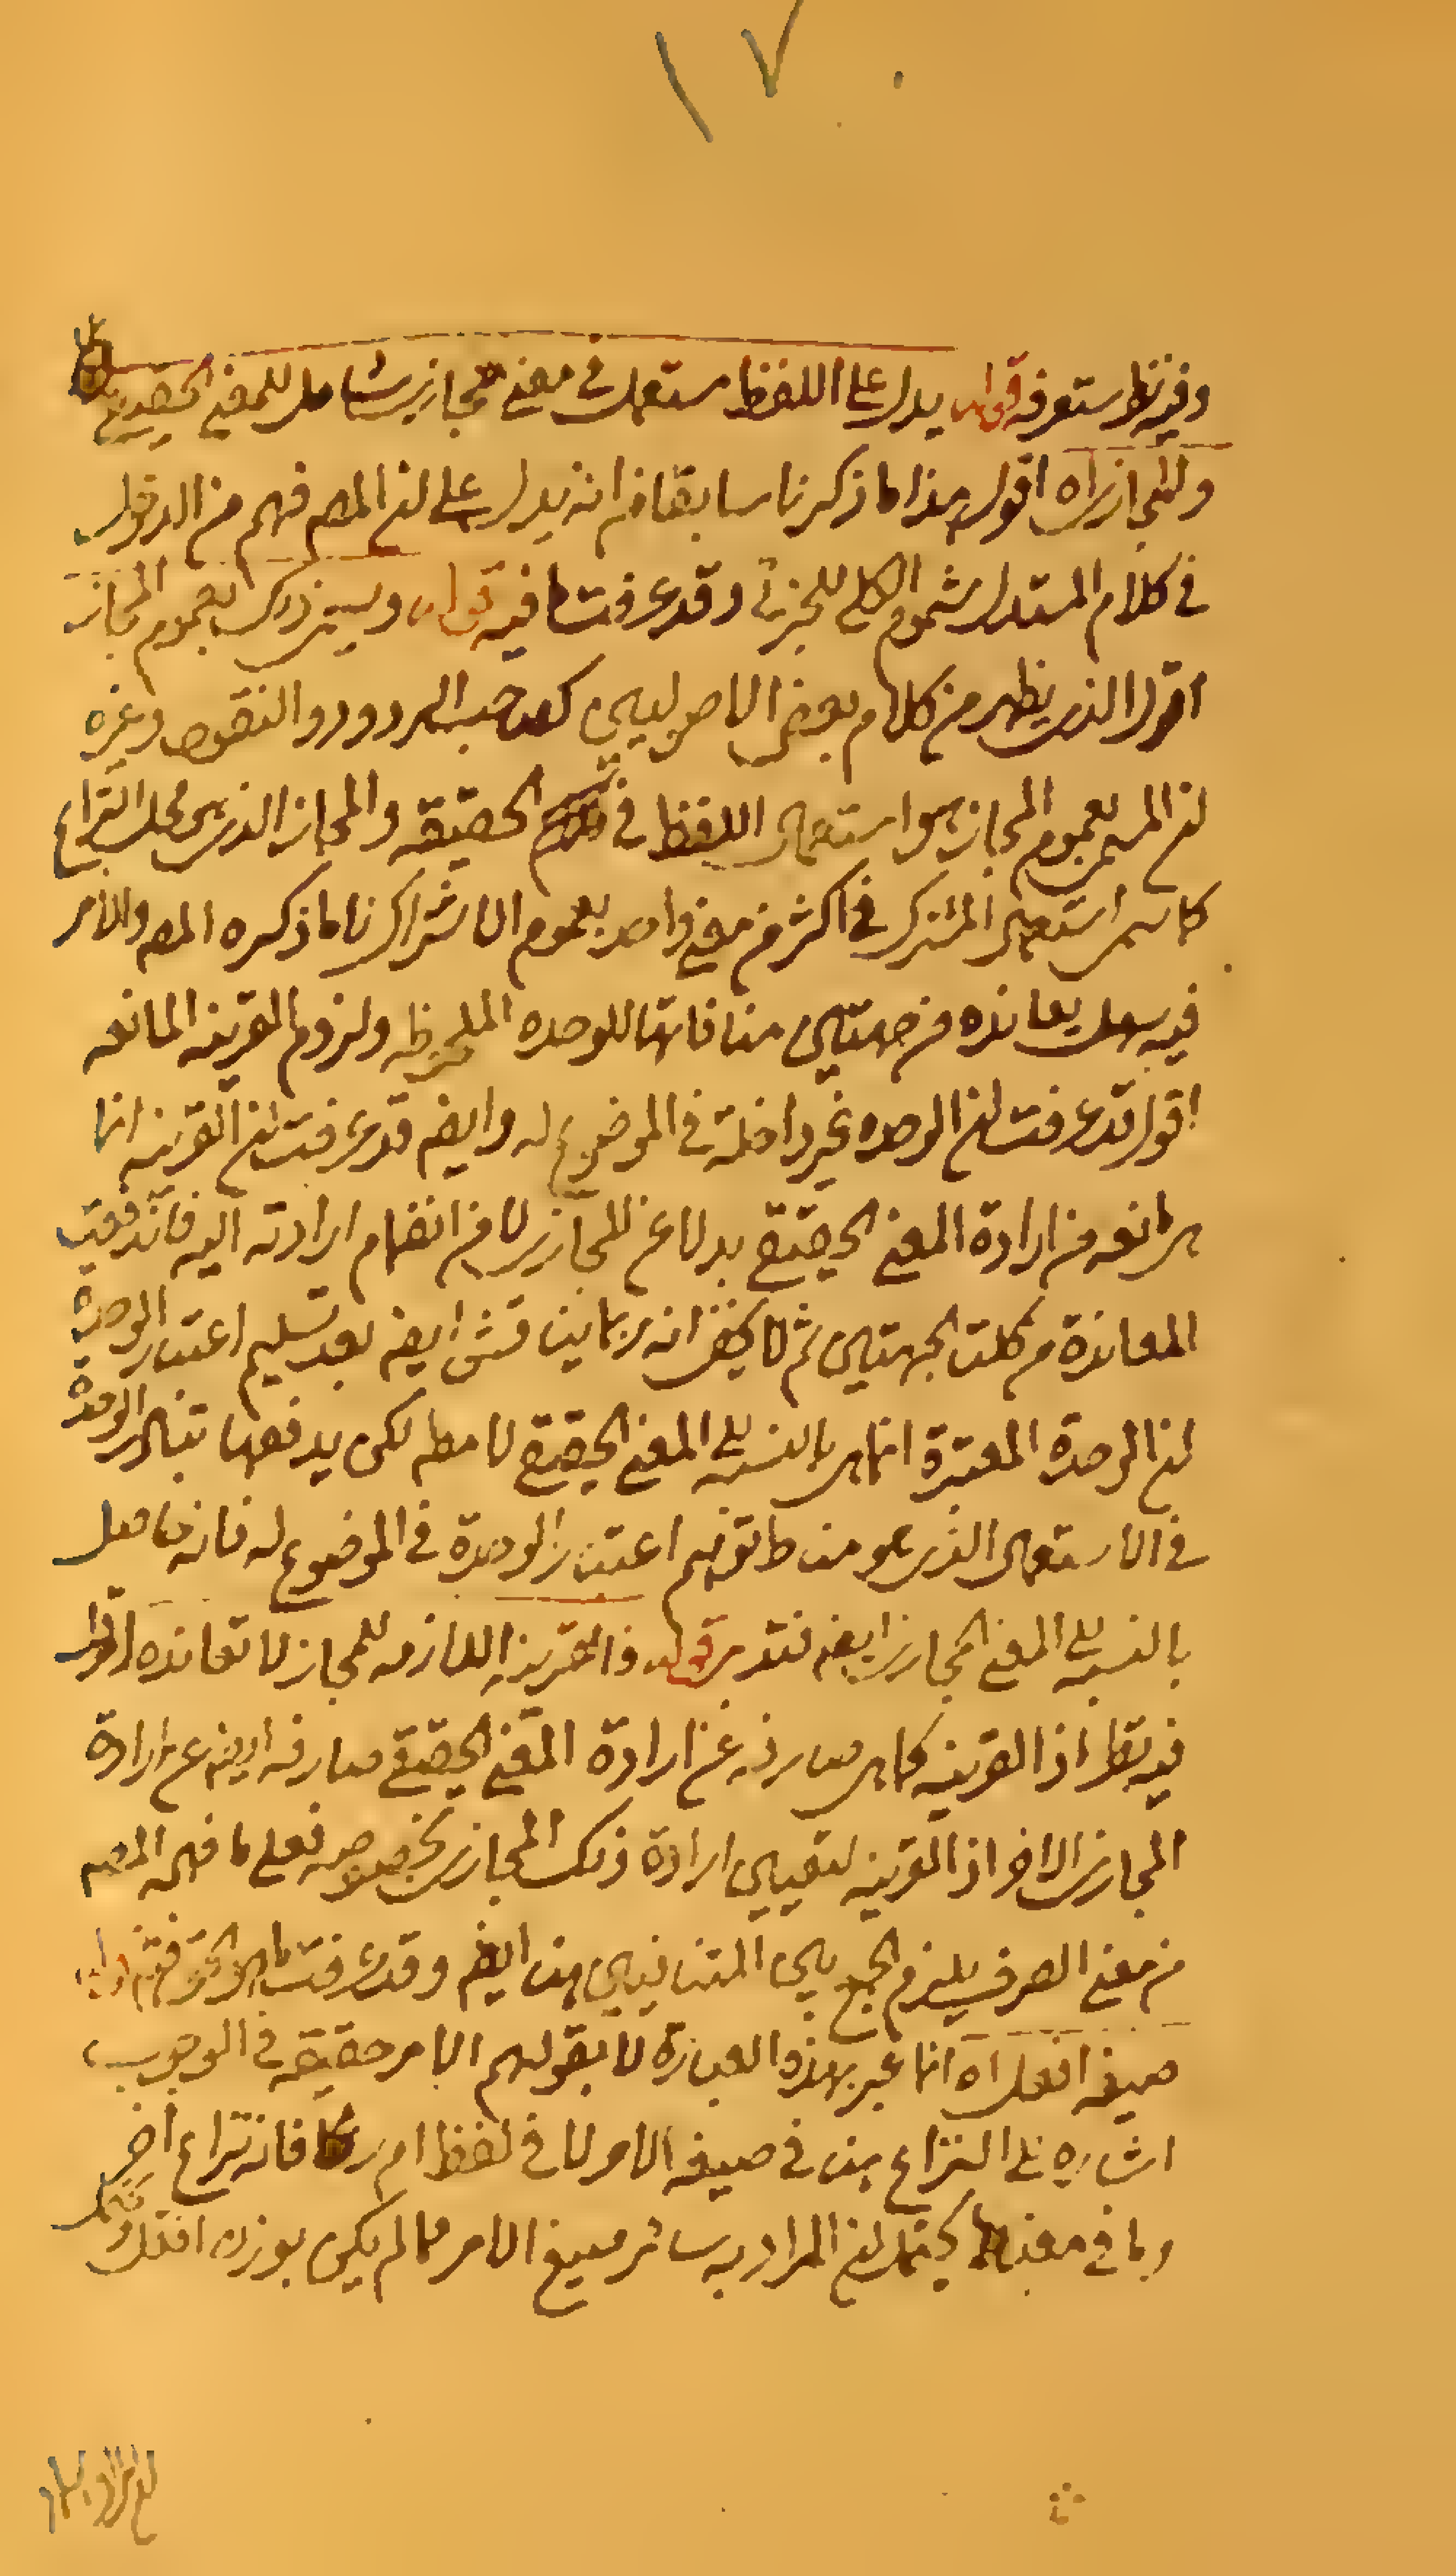 ١٧٠
وفيه نظر ستعرفه قوله يدل على اللفظ مستعمل في معنى مجازي شامل للمعنى الحقيقي
والمجازي اه اقول هذا ما ذكرنا سابقا من انه يدل على ان المصـ فهم من الدخول
في كلام المستدل شمول الكلي للجزئي وقد عرفت ما فيه قوله ويسمى ذلك بعموم المجاز
اقول الذي يظهر من كلام بعض الاصوليين كصاحب الردود والنقود وغيره
ان المسمى بعموم المجاز هو استعمال اللفظ في الحقيقة والمجاز الذي هو محل النزاع
كما سمى استعمال المشترك في اكثر من معنى واحد بعموم الاشتراك لا ما ذكره المصـ والامر
فيه سهل يعانده من جهتين منافاتها للوحده الملحوظه ولزوم القرينه المانعه
اقول قد عرفت ان الوحده غير داخلة في الموضوع له وايضـ قد عرفت ان القرينه انما
هي مانعه من ارادة المعنى الحقيقي بدلا عن المجازي لا من انضمام ارادته اليه فاندفعت
المعاندة من كلتا الجهتين ثم لا يخفى انه ربما يناقش ايضـ بعد تسليم اعتبار الوحدة
ان الوحدة المعتبرة انما هي بالنسبه الى المعنى الحقيقي لا مطـ لكن يدفعها تبادر الوحدة
في الاستعمال الذي هو مناط توهم اعتبار الوحدة في الموضوع له فانه حاصل
بالنسبه الى المعنى المجازي ايضـ فتدبر قوله فالقرينه اللازمه للمجاز لا تعانده اقول
فيه نظر اذ القرينه كما هي صارفه عن ارادة المعنى الحقيقي صارفه ايضـ عن ارادة
المجازي الاخر اذ القرينه لتعيين ارادة ذلك المجازي بخصوصه فعلى ما فهمه المصـ
من معنى الصرف يلزم الجمع بين المتنافيين هنا ايضـ وقد عرفت ما هو الحق فتم قوله
صيغه افعل اه انما عبر بهذه العبارة لا بقولهم الامر حقيقه في الوجوب
اشاره الى النزاع هنا في صيغه الامر لا في لفظ ام ر فانه نزاع اخر
وما في معناها يحتمل ان المراد به سائر صيغ الامر مما لم يكن بوزن افعل